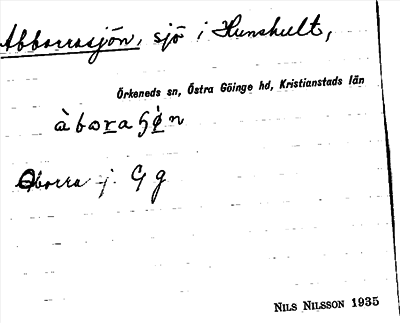 Abborrasjön, sjö i Hunshult,
Örkeneds sn, Östra Göinge hd, Kristianstads län
àboraʃø̀n
Oborra j. Gg
NILS NILSSON 1935